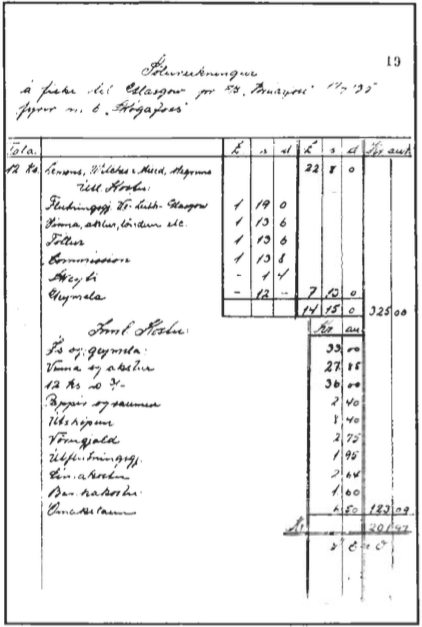 19
Sölureikningur
á fiski til Glasgow pr E.s. "Brúarfoss"
fyrir m. b. "Skógafoss"
Tala. £ s d £ s d Kr aur
12 Ks. Lemons, Witches & Meed, Megrims 22 8 0
Útl. Kostn:
Flutningsgj. Glasgow 1 19 0
Vinna, akstur, löndun etc. 1 13 6
Tollur 1 13 6
Commission 1 13 8
1 4
Geymsla - 12 - 7 13 0
14 15 0 325 00
Innl. Kostn: Kr au
Ís og geymsla: 33 00
Vinna og akstur 27 85
12 Ks à 3/- 36 00
Pappír og saumur 2 40
Útskipun 8 40
Vörugjald 2 75
Útflutningsgj. 1 95
2 64
1 60
Ómakslaun 6 50 123 09
Kr 201 91